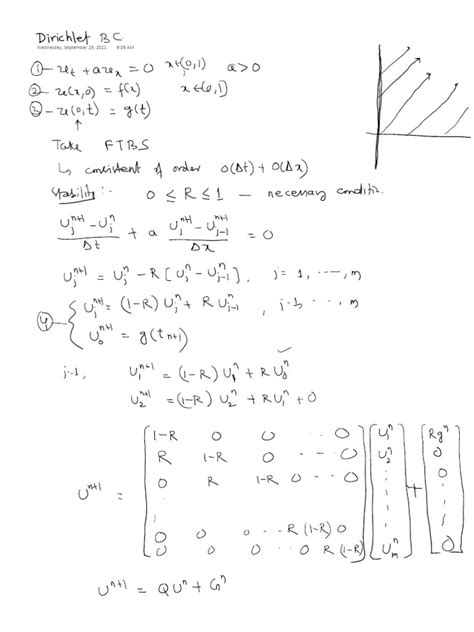 Dirichlet BC
Wednesday, September 29, 2021 8:08 AM
① — u_t + a u_x = 0 x∈(0,1) a>0
② — u(x,0) = f(x) x∈(0,1]
③ — u(0,t) = g(t)
↑
Take FTBS
↳ consistent of order O(Δt) + O(Δx)
Stability :- 0 ≤ R ≤ 1 — necessary conditin.
(U_j^{n+1} - U_j^n)/Δt + a (U_j^{n+1} - U_{j-1}^{n+1})/Δx = 0
U_j^{n+1} = U_j^n - R [U_j^n - U_{j-1}^n], j = 1, ---, m
④ { U_j^{n+1} = (1-R) U_j^n + R U_{j-1}^n, j=1, ---, m
U_0^{n+1} = g(t_{n+1})
j=1, U_1^{n+1} = (1-R) U_1^n + R U_0^n ✓
U_2^{n+1} = (1-R) U_2^n + R U_1^n + 0
U^{n+1} = [ 1-R 0 0 -- 0 ] [ U_1^n ] + [ Rg^n ]
R 1-R 0 -- 0 U_2^n 0
0 R 1-R 0 -- 0 0
0 0 0 -- R (1-R) 0
0 0 0 -- 0 R (1-R) U_m^n 0
U^{n+1} = QU^n + G^n